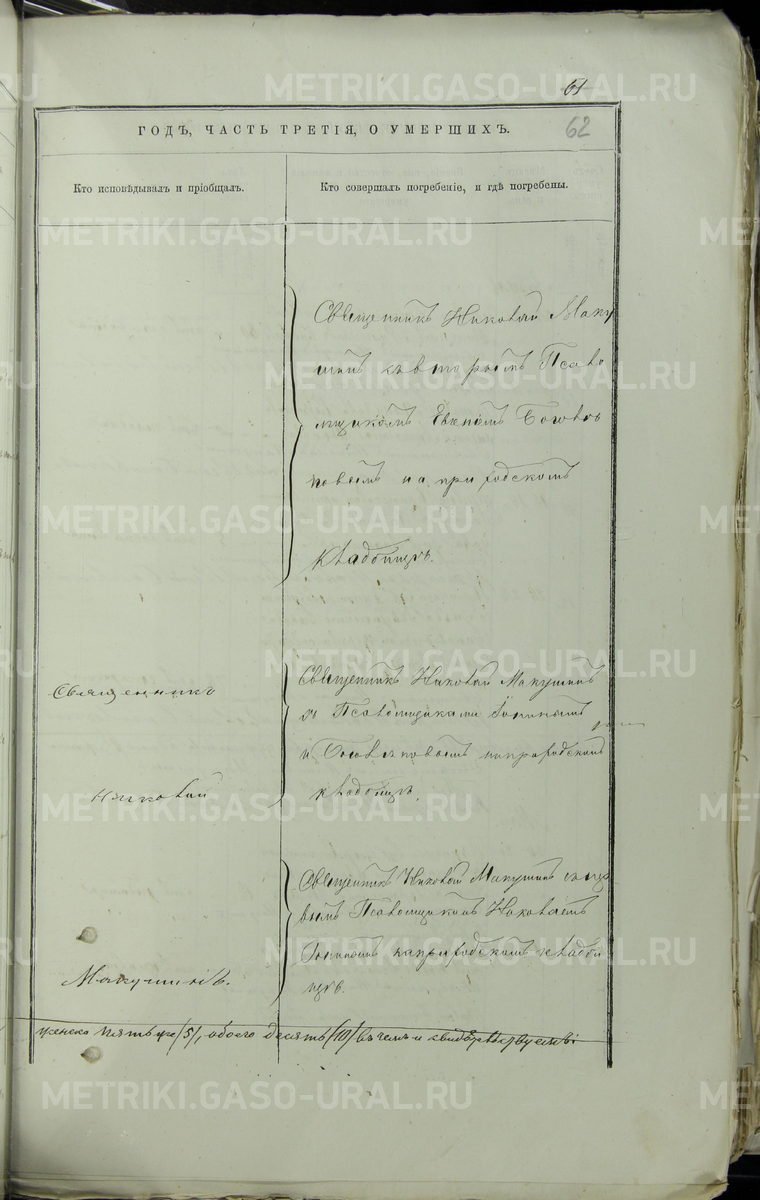 61
62
ГОДЪ, ЧАСТЬ ТРЕТІЯ, О УМЕРШИХЪ.
Кто исповѣдывалъ и пріобщалъ.
Кто совершалъ погребеніе, и гдѣ погребены.
Священникъ Николай Маку
шинъ съ вторымъ Псало
мщикомъ
повымъ на приходскомъ
кладбищѣ.
Священникъ
Николай
Макушинъ.
Священникъ Николай Макушинъ
съ Псаломщиками
и на приходскомъ
кладбищѣ.
Священникъ Николай Макушинъ съ пер
вымъ Псаломщикомъ Николаемъ
на приходскомъ кладби
щѣ.
женска пять /5/, обоего десять /10/ въ чемъ и свидѣтельствуемъ:
METRIKI.GASO-URAL.RU